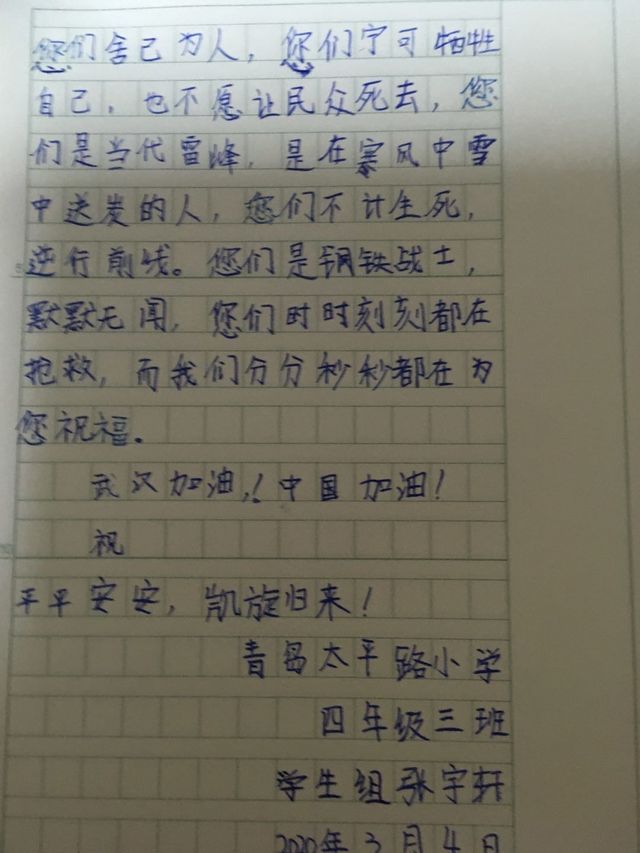 您们舍己为人，您们宁可牺牲
自己，也不愿让民众死去，您
们是当代雷峰，是在寒风中雪
中送炭的人，您们不计生死，
逆行前线。您们是钢铁战士，
默默无闻，您们时时刻刻都在
抢救，而我们分分秒秒都在为
您祝福。
武汉加油！中国加油！
祝
平平安安，凯旋归来！
青岛太平路小学
四年级三班
学生组张宇轩
2020年3月4日